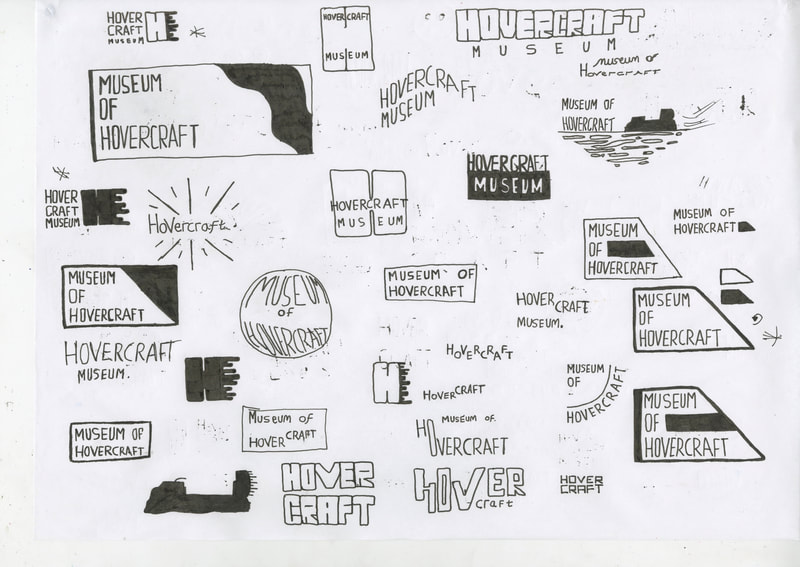 HOVER
CRAFT
MUSEUM
HE
HOVERCRAFT
MUSEUM
HOVERCRAFT
MUSEUM
museum of
Hovercraft
MUSEUM
OF
HOVERCRAFT
HOVERCRAFT
MUSEUM
MUSEUM OF
HOVERCRAFT
HOVERCRAFT
MUSEUM
HOVER
CRAFT
MUSEUM
HE
Hovercraft
HOVERCRAFT
MUSEUM
MUSEUM
OF
HOVERCRAFT
MUSEUM OF
HOVERCRAFT
MUSEUM
OF
HOVERCRAFT
MUSEUM
OF
HOVERCRAFT
MUSEUM OF
HOVERCRAFT
HOVERCRAFT
MUSEUM.
MUSEUM
OF
HOVERCRAFT
HOVERCRAFT
MUSEUM.
HE
HOVERCRAFT
HE
HOVERCRAFT
MUSEUM
OF
HOVERCRAFT
MUSEUM
OF
HOVERCRAFT
MUSEUM OF
HOVERCRAFT
MUSEUM OF
HOVERCRAFT
MUSEUM OF.
HOVERCRAFT
HOVER
CRAFT
HOVER
craft
HOVER
CRAFT